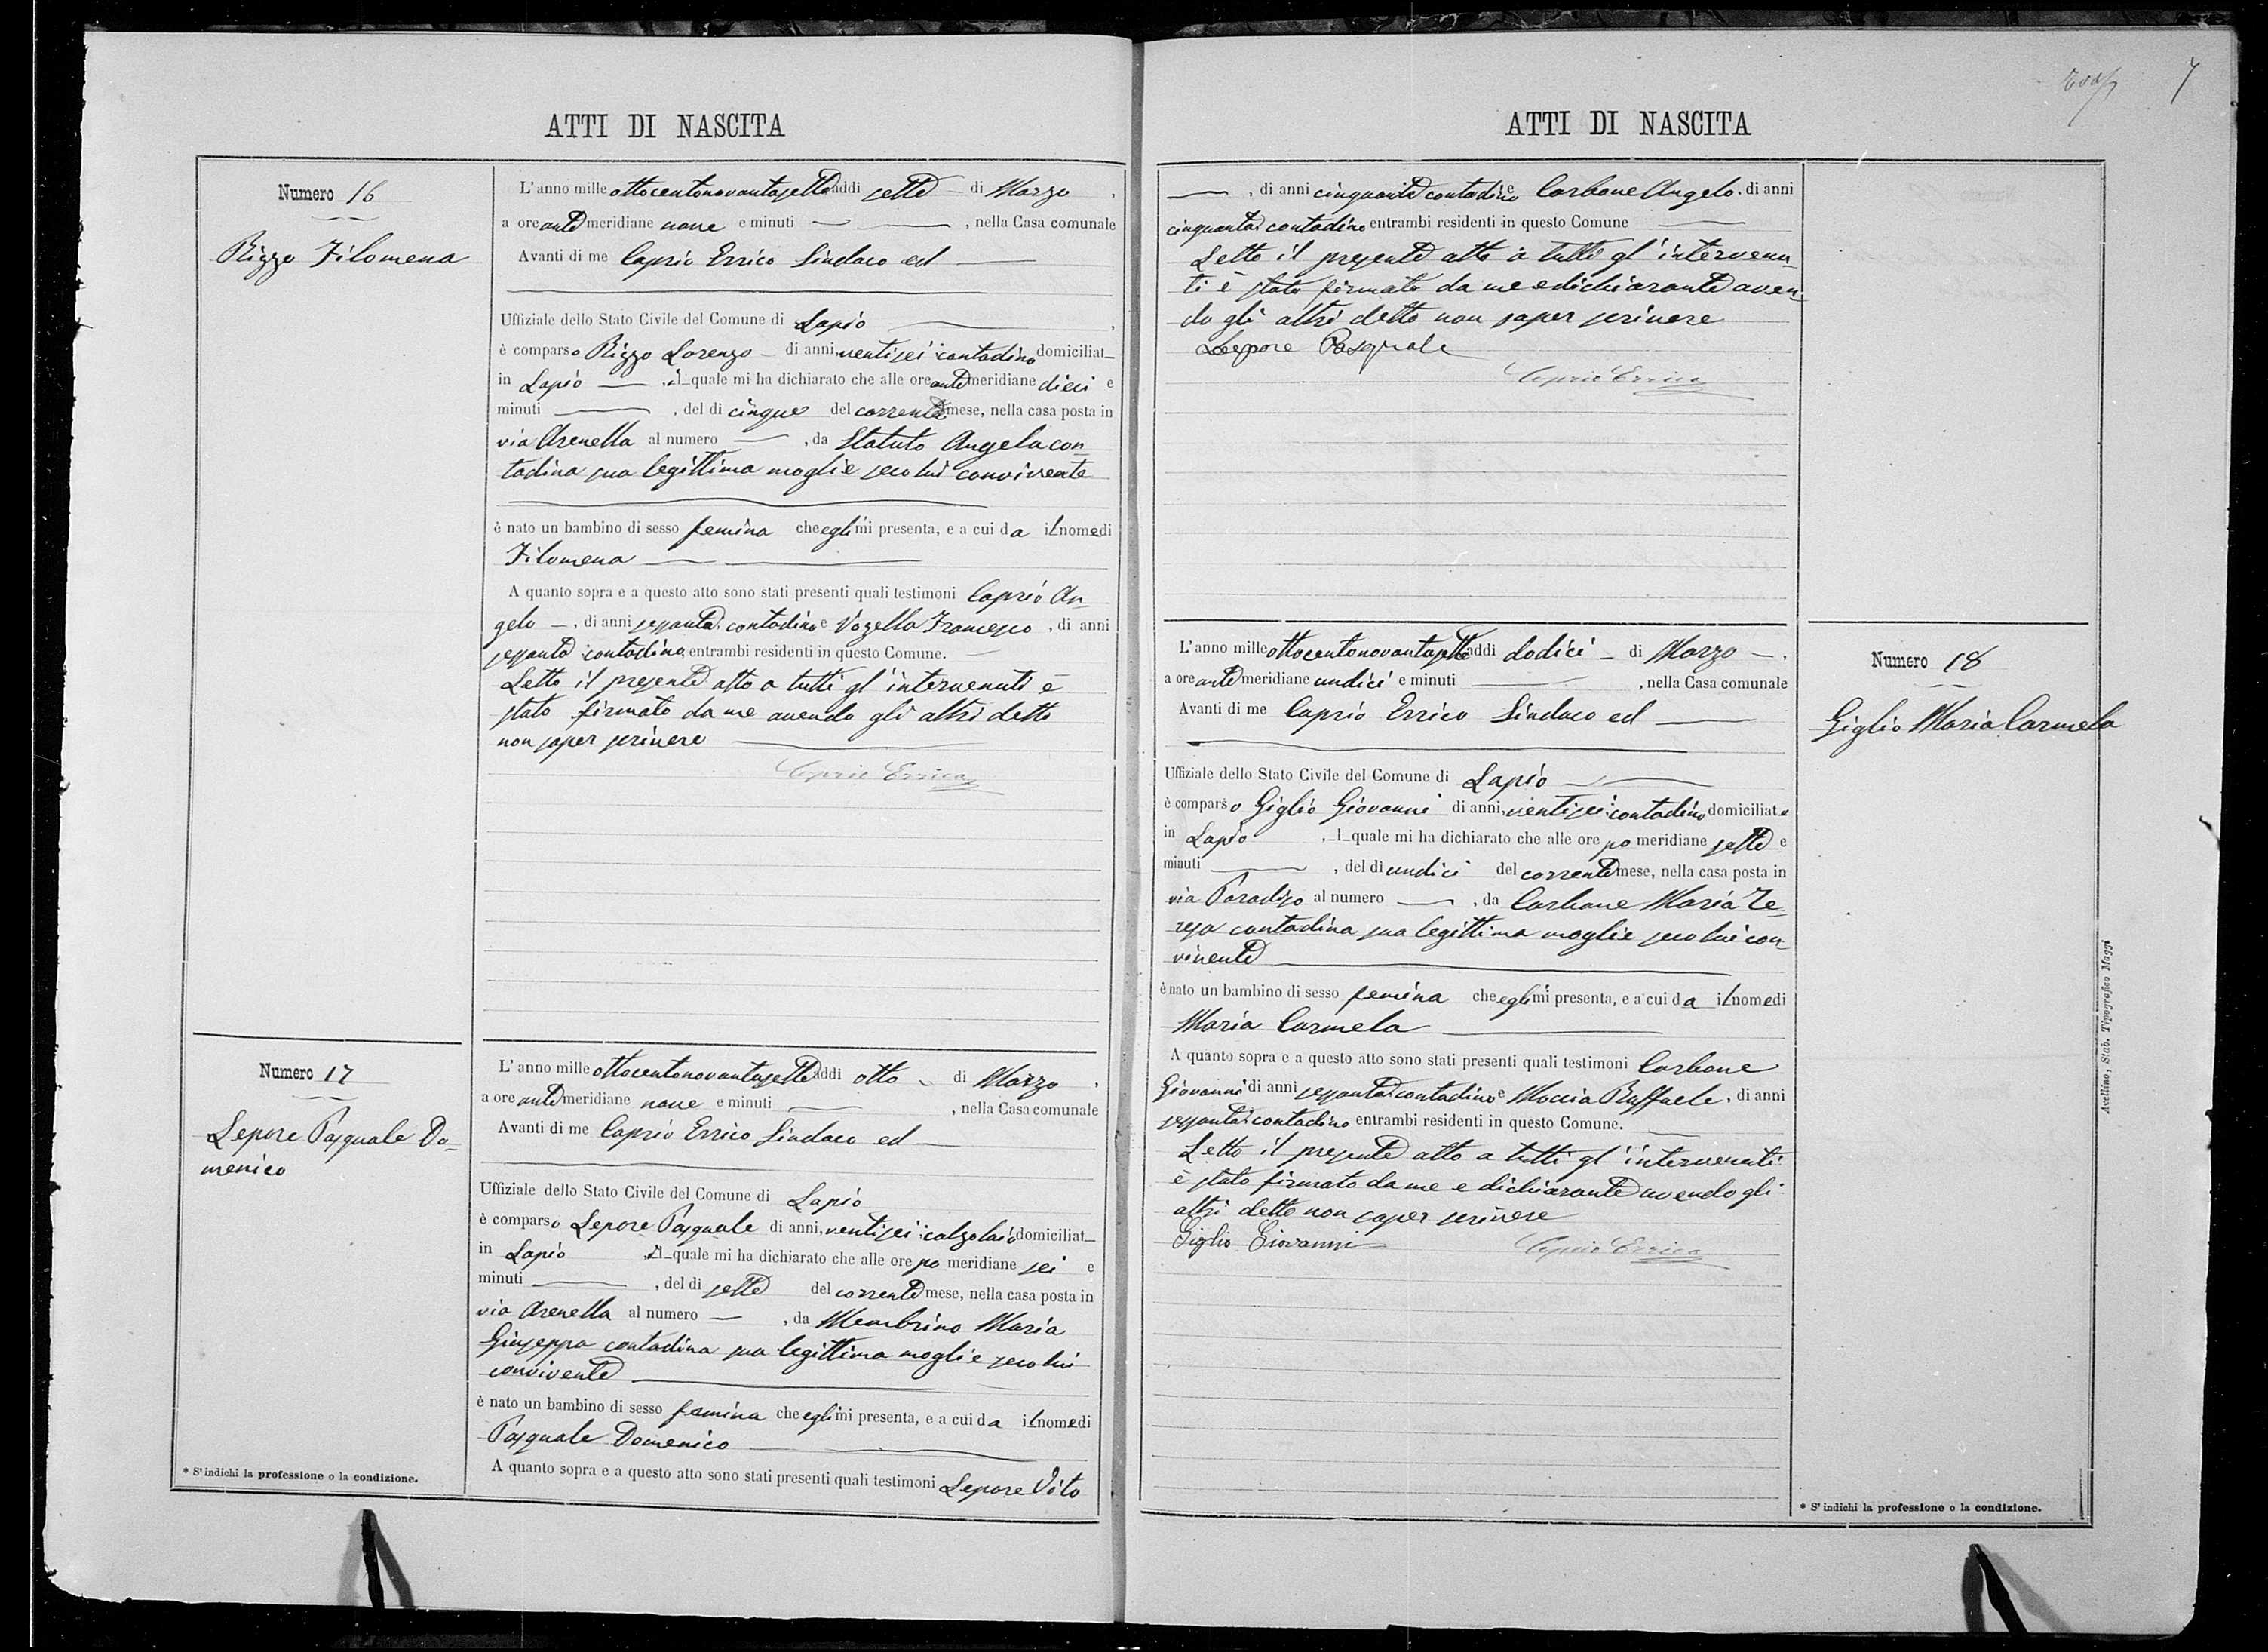 ATTI DI NASCITA
Numero 16
Rizzo Filomena
L'anno mille ottocentonovantasette addì sette di Marzo,
a ore ante meridiane nove e minuti — , nella Casa comunale
Avanti di me Caprio Errico Sindaco ed
Uffiziale dello Stato Civile del Comune di Lapio,
è comparso Rizzo Lorenzo di anni, ventisei contadino domiciliat
in Lapio —, il quale mi ha dichiarato che alle ore ante meridiane dieci e
minuti — , del dì cinque del corrente mese, nella casa posta in
via Arenella al numero — , da Statuto Angela con
tadina sua legittima moglie seco lui convivente
è nato un bambino di sesso femina che egli mi presenta, e a cui da il nome di
Filomena
A quanto sopra e a questo atto sono stati presenti quali testimoni Caprio An
gelo —, di anni sessanta, contadino e Vozella Francesco, di anni
sessanta contadino, entrambi residenti in questo Comune.
Letto il presente atto a tutti gl'intervenuti è
stato firmato da me avendo gli altri detto
non saper scrivere
Caprio Errico
Numero 17
Lepore Pasquale Do-
menico
L'anno mille ottocentonovantasette addì otto di Marzo,
a ore ante meridiane nove e minuti — , nella Casa comunale
Avanti di me Caprio Errico Sindaco ed
Uffiziale dello Stato Civile del Comune di Lapio
è comparso Lepore Pasquale di anni, ventisei calzolaio domiciliat
in Lapio , il quale mi ha dichiarato che alle ore po meridiane sei e
minuti — , del dì sette del corrente mese, nella casa posta in
via Arenella al numero — , da Membrino Maria
Giuseppa contadina sua legittima moglie seco lui
convivente
è nato un bambino di sesso femina che egli mi presenta, e a cui da il nome di
Pasquale Domenico
A quanto sopra e a questo atto sono stati presenti quali testimoni Lepore Vito
* S'indichi la professione o la condizione.
7
ATTI DI NASCITA
— , di anni cinquanta contadino e Carbone Angelo, di anni
cinquanta contadino entrambi residenti in questo Comune
Letto il presente atto a tutti gl'intervenu-
ti è stato firmato da me e dichiarante aven-
do gli altri detto non saper scrivere
Lepore Pasquale
Caprio Errico
Numero 18
Giglio Maria Carmela
L'anno mille ottocentonovantasette addì dodici di Marzo —,
a ore ante meridiane undici e minuti — , nella Casa comunale
Avanti di me Caprio Errico Sindaco ed
Uffiziale dello Stato Civile del Comune di Lapio
è comparso Giglio Giovanni di anni, ventisei contadino domiciliato
in Lapio , il quale mi ha dichiarato che alle ore po meridiane sette e
minuti — , del dì undici del corrente mese, nella casa posta in
via Paradiso al numero — , da Carbone Maria Te-
resa contadina sua legittima moglie seco lui con-
vivente
è nato un bambino di sesso femina che egli mi presenta, e a cui da il nome di
Maria Carmela
A quanto sopra e a questo atto sono stati presenti quali testimoni Carbone
Giovanni di anni sessanta contadino e Moccia Raffaele, di anni
sessanta contadino entrambi residenti in questo Comune.
Letto il presente atto a tutti gl'intervenuti
è stato firmato da me e dichiarante avendo gli
altri detto non saper scrivere
Giglio Giovanni
Caprio Errico
* S'indichi la professione o la condizione.
Avellino, Stab. Tipografico Maggi